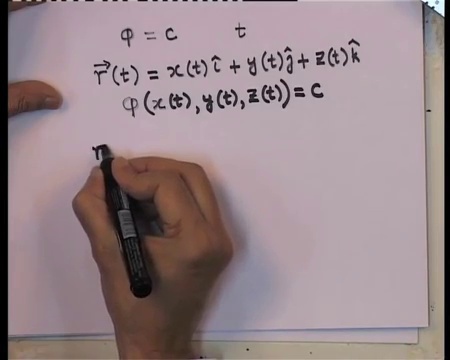 φ = c t
r⃗(t) = x(t)î + y(t)ĵ + z(t)k̂
φ(x(t), y(t), z(t)) = c
r